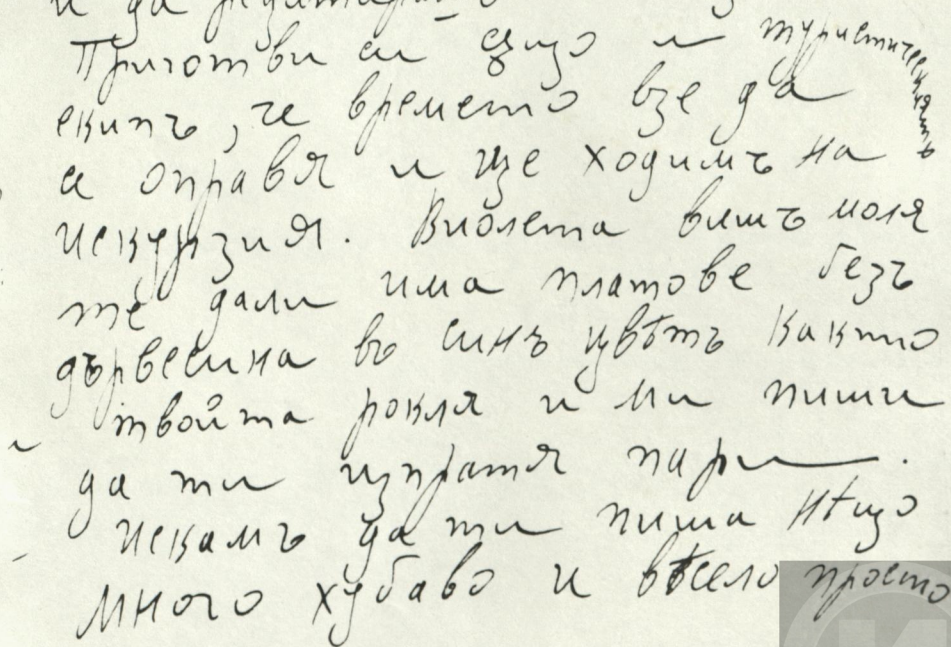 и да
Приготви си също и туристическиятъ
екипъ, че времето взе да
се оправя и ще ходимъ на
искурзия. Виолета вишъ моля
те дали има платове безъ
дървесина въ синъ цвѣтъ както
твойта рокля и ми пиши
да ти изпратя пари.
Искамъ да ти пиша нѣщо
много хубаво и вѣсело просто